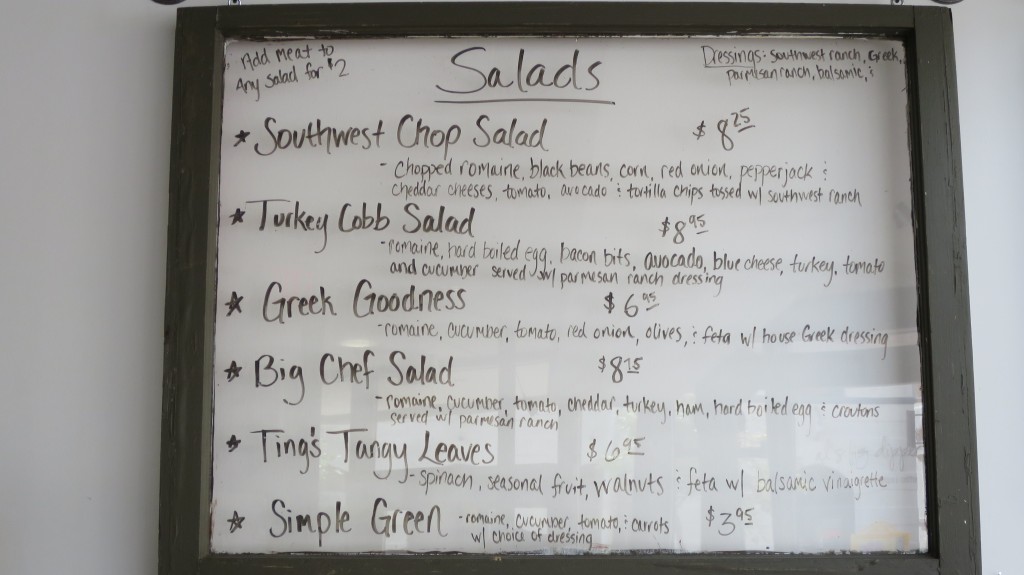 Add meat to
Any salad for $2
Salads
Dressings: Southwest ranch, Greek,
parmesan ranch, balsamic, &
★ Southwest Chop Salad $8.25
- Chopped romaine, black beans, corn, red onion, pepperjack &
cheddar cheeses, tomato, avocado & tortilla chips tossed w/ southwest ranch
★ Turkey Cobb Salad $8.95
- romaine, hard boiled egg, bacon bits, avocado, blue cheese, turkey, tomato
and cucumber served w/ parmesan ranch dressing
★ Greek Goodness $6.95
- romaine, cucumber, tomato, red onion, olives, & feta w/ house Greek dressing
★ Big Chef Salad $8.75
- romaine, cucumber, tomato, cheddar, turkey, ham, hard boiled egg & croutons
served w/ parmesan ranch
★ Ting's Tangy Leaves $6.95
- Spinach, seasonal fruit, walnuts & feta w/ balsamic vinaigrette
★ Simple Green - romaine, cucumber, tomato, & carrots $3.95
w/ choice of dressing